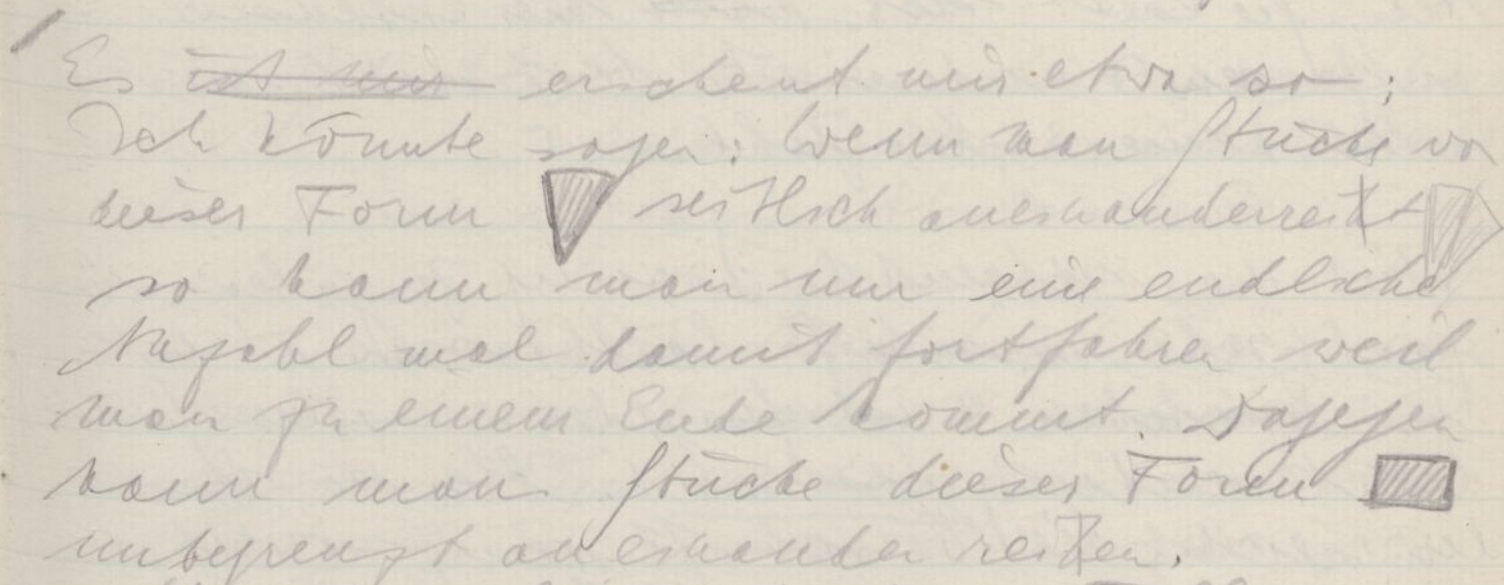 Es ist mir erscheint mir etwa so:
Ich könnte sagen: Wenn man Stücke vo
dieser Form seitlich aneinanderreiht
so kann man nur eine endliche
Anzahl mal damit fortfahren weil
man zu einem Ende kommt. Dagegen
kann man Stücke dieser Form
unbegrenzt aneinander reihen.